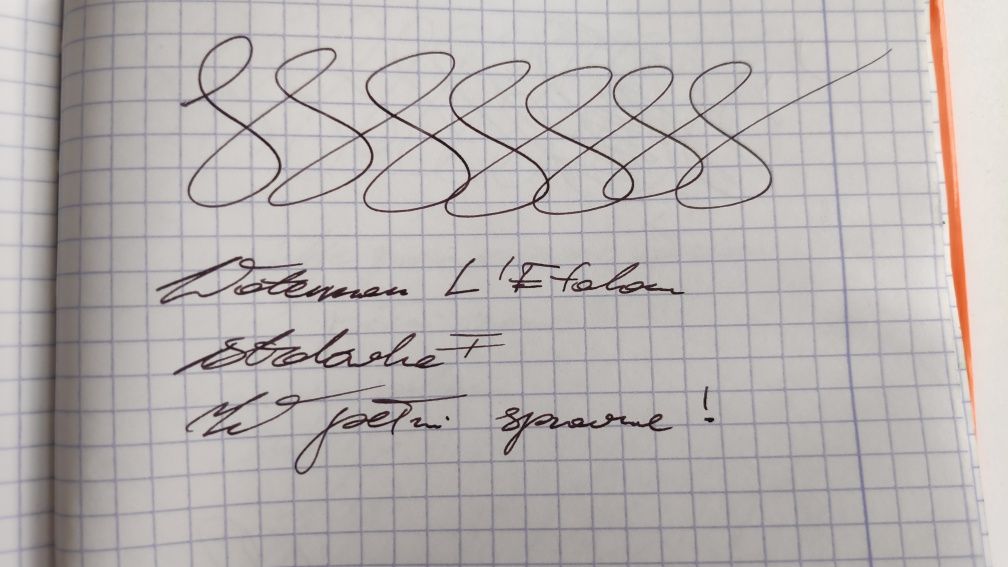 Waterman L'Etalon
stalówka F
W pełni sprawne!